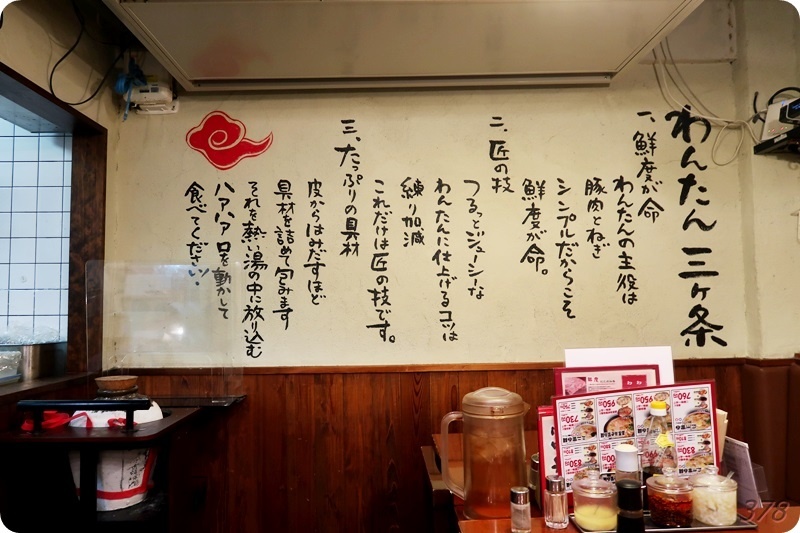 わんたん三ヶ条
一、鮮度が命
わんたんの主役は
豚肉とねぎ
シンプルだからこそ
鮮度が命。
二、匠の技
つるっとジューシーな
わんたんに仕上げるコツは
練り加減
これだけは匠の技です。
三、たっぷりの具材
皮からはみだすほど
具材を詰めて包みます
それを熱い湯の中に放り込む
ハフハフ口を動かして
食べてください。
950
950
760
730
830
830
378